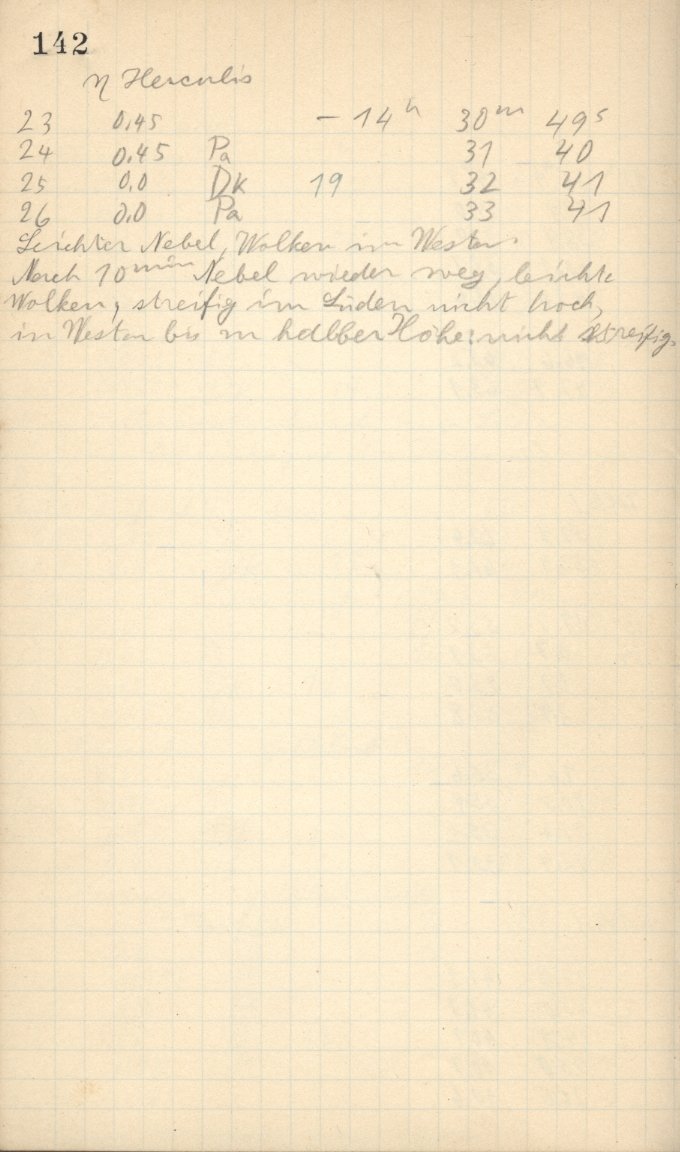 142
η Herculis
23 0.45 – 14h 30m 49s
24 0.45 Pa 31 40
25 0.0 Dk 19 32 41
26 0.0 Pa 33 41
Leichter Nebel, Wolken im Westen.
Nach 10min Nebel wieder weg, leichte
Wolken, streifig im Süden nicht hoch,
in Westen bis zu halber Höhe: nicht streifig.